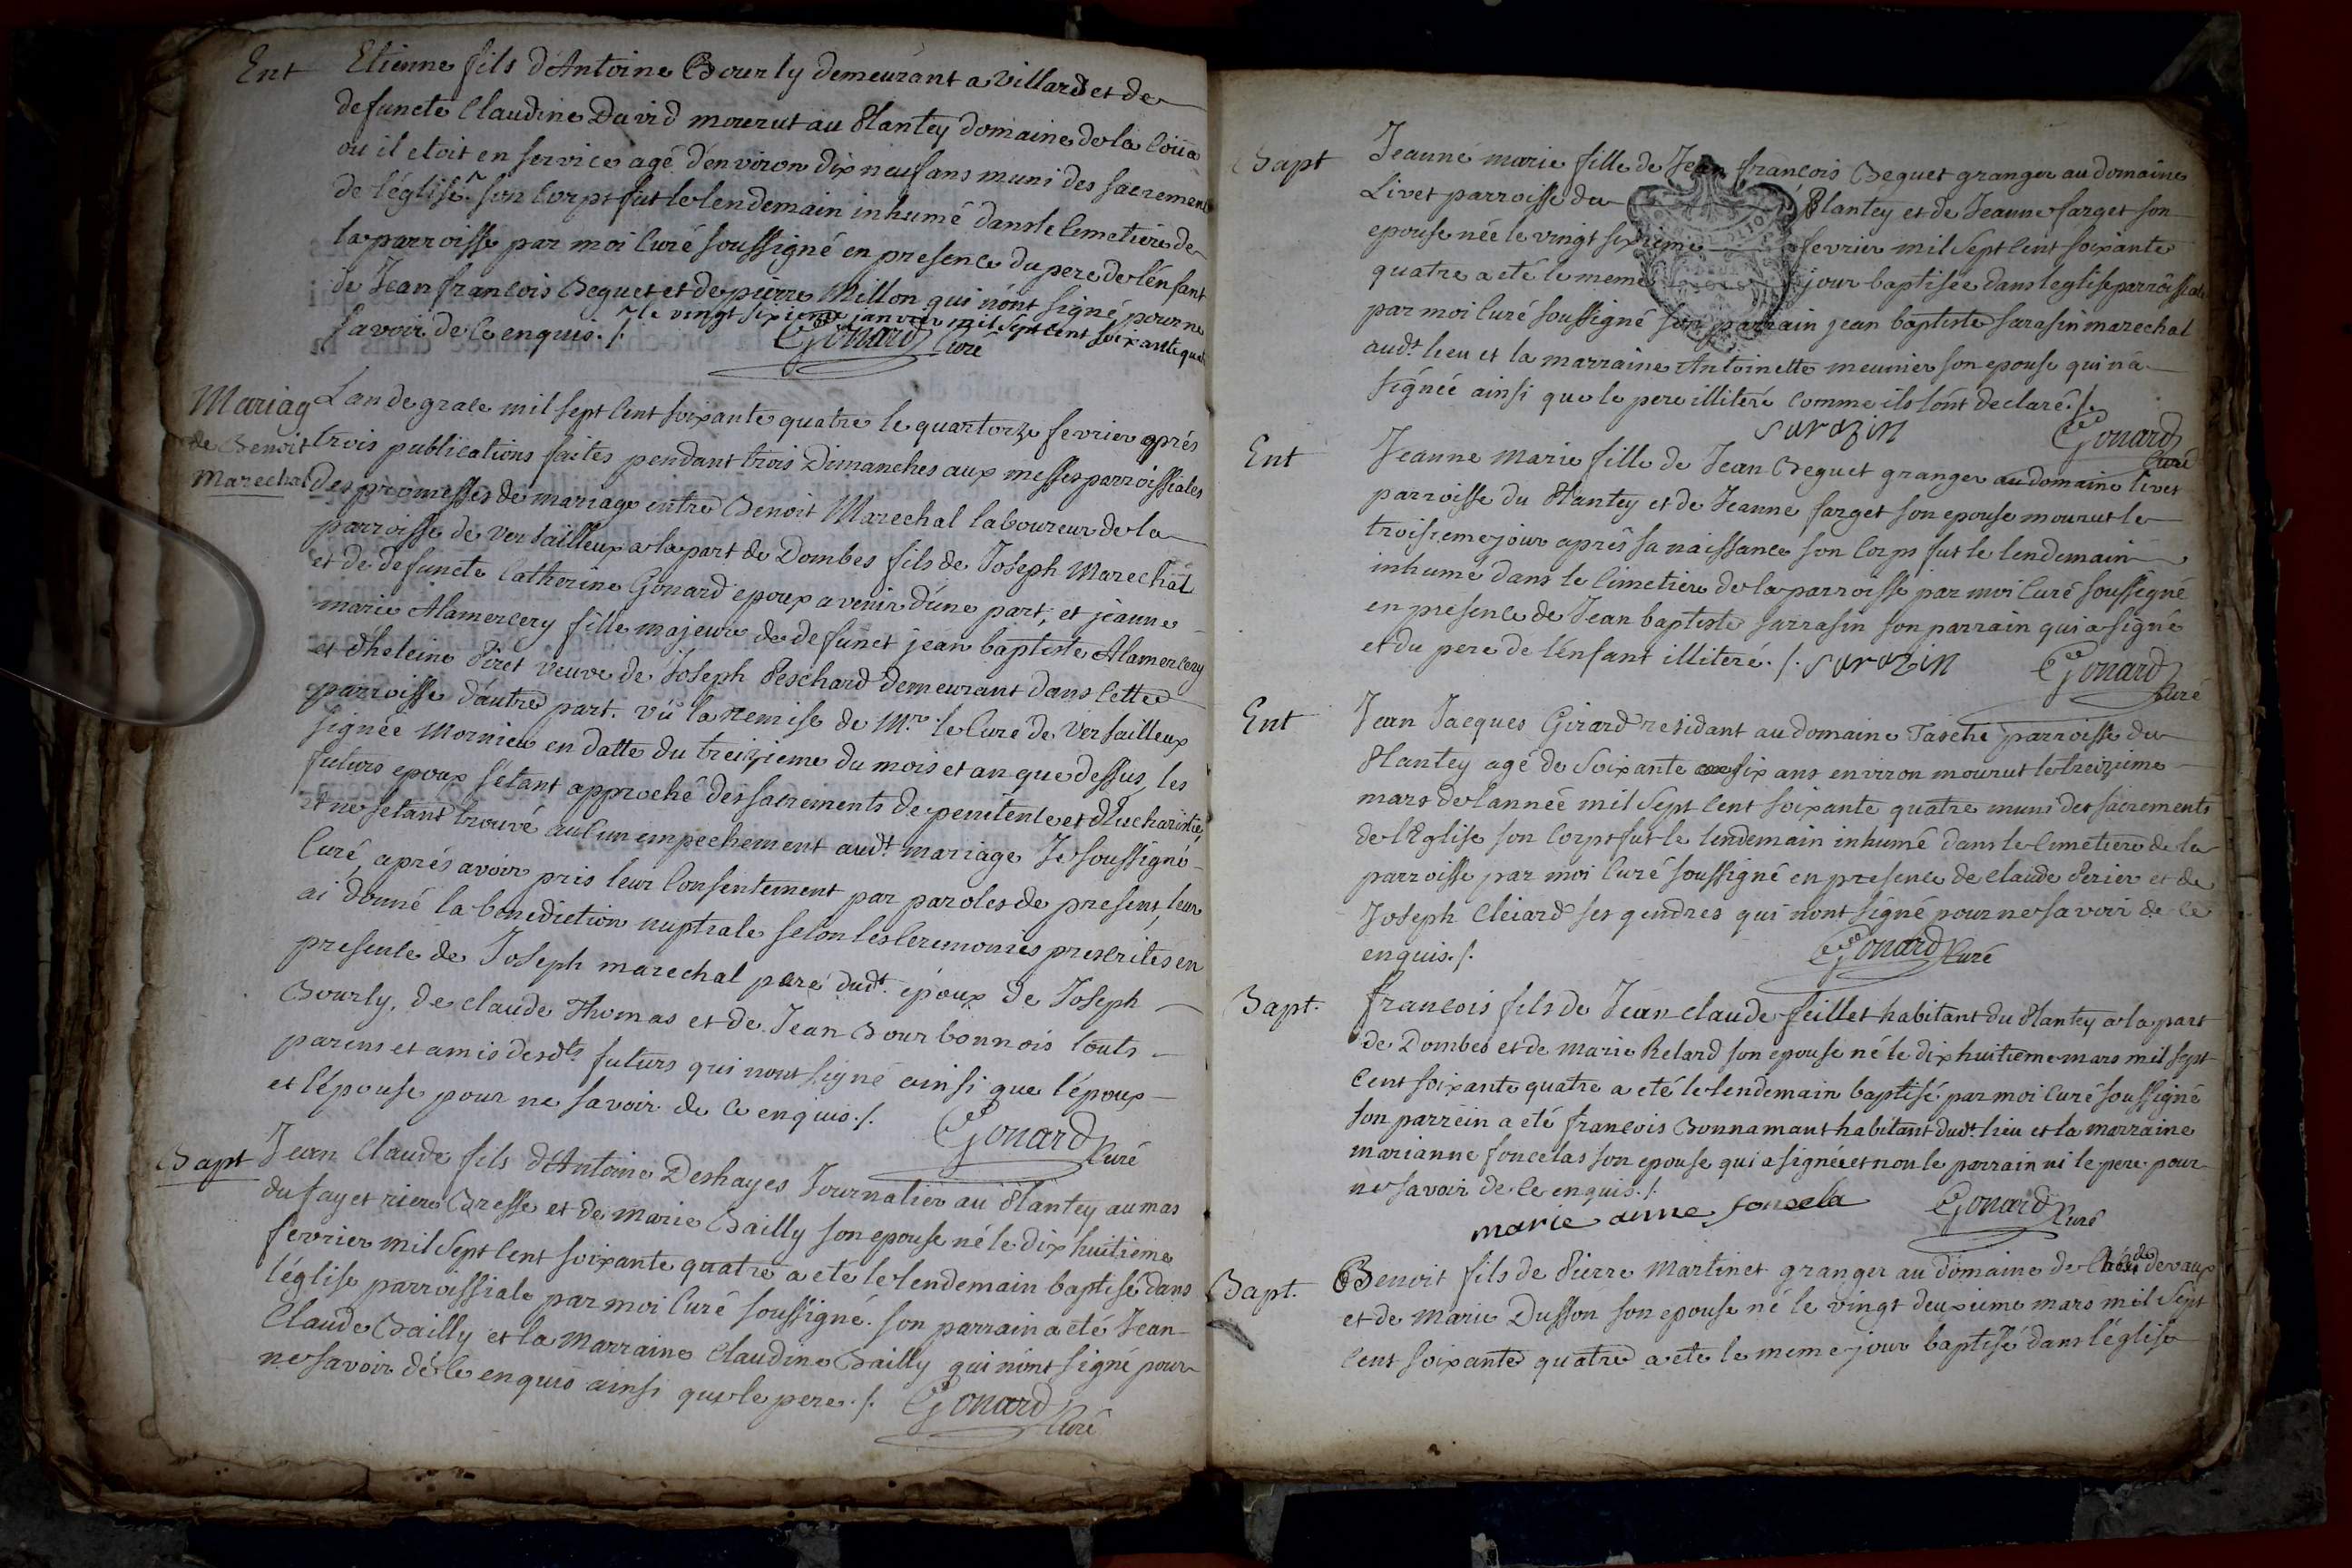 Ent Etienne fils d'Antoine Bourly demeurant a Villard et de
defuncte Claudine David mourut au Plantey domaine de la Coüa
ou il etoit en service agé d'environ dix neuf ans muni des sacrements
de l'église ^ son corps fut le lendemain inhumé dans le cimetiere de
la parroisse par moi curé soussigné en presence du pere de l'énfant
de Jean françois Beguet et de pierre Millon qui n'ont signé pour ne
^ le vingt sixieme janvier mil sept cent soixante quatre
savoir de ce enquis ./.
Gonard Curé
Mariag L'an de grace mil sept cent soixante quatre le quartorze fevrier aprés
de Benoit trois publications faites pendant trois Dimanches aux messes parroissiales
Marechal des promesses de mariage entre Benoit Marechal laboureur de la
parroisse de Versailleux a la part de Dombes fils de Joseph Marechal
et de defuncte Catherine Gonard epoux a venir d'une part, et jeanne
marie Alamercery fille majeure de defunct jean baptiste Alamercery
et d'heleine Piret veuve de Joseph Peschard demeurant dans cette
parroisse d'autre part. vû la remise de Mr. le Curé de Versailleux
signée Mornieu en datte du treizieme du mois et an que dessus, les
futurs epoux s'étant approché des sacrements de penitente et d'Eucharistie,
et ne s'etant trouvé aucun empechement audt. mariage Je soussigné
Curé, aprés avoir pris leur consentement par paroles de present, leur
ai donné la benediction nuptiale selon les ceremonies prescrites en
presence de Joseph marechal pere dudt. époux de Joseph
Bourly, de claude Thomas et de Jean Bourbonnois touts
parens et amis desdts futurs qui n'ont signé ainsi que l'époux
et l'épouse pour ne savoir de ce enquis ./.
Gonard Curé
Bapt Jean Claude fils d'Antoine Deshayes Journalier au Plantey au mas
du fayet riere Bresse et de marie Bailly son epouse né le dix huitieme
fevrier mil sept cent soixante quatre a eté le lendemain baptisé dans
l'église parroissiale par moi curé soussigné. son parrain a eté Jean
Claude Bailly et la Marraine Claudine Bailly qui n'ont signé pour
ne savoir de ce enquis ainsi que le pere ./. Gonard
Curé
Bapt Jeanne marie fille de Jean françois Beguet granger au domaine
Livet parroisse du Plantey et de Jeanne farget son
epouse née le vingt sixieme fevrier mil sept cent soixante
quatre a eté le meme jour baptisée dans l'eglise parroissiale
par moi curé soussigné son parrain jean baptiste sarasin marechal
audt. lieu et la marraine Antoinette meunier son epouse qui n'a
signée ainsi que le pere illiteré comme ils l'ont declaré ./.
sarazin Gonard
Curé
Ent Jeanne marie fille de Jean Beguet granger au domaine livet
parroisse du Plantey et de Jeanne farget son epouse mourut le
troisieme jour aprés sa naissance son corps fut le lendemain
inhumé dans le cimetiere de la parroisse par moi curé soussigné
en presence de Jean baptiste sarrasin son parrain qui a signé
et du pere de l'énfant illiteré ./. sarazin Gonard
Curé
Ent Jean Jacques Girard residant au domaine Tasche parroisse du
Plantey agé de soixante six ans environ mourut le treizieme
mars de l'année mil sept cent soixante quatre muni des sacrements
de l'Eglise son corps fut le lendemain inhumé dans le cimetiere de la
parroisse par moi Curé soussigné en presence de claude Perier et de
Joseph Cleiard ses gendres qui n'ont signé pour ne savoir de ce
enquis ./. Gonard Curé
Bapt. françois fils de Jean claude feillet habitant du Plantey a la part
de Dombes et de marie Relard son epouse né le dix huitieme mars mil sept
cent soixante quatre a eté le lendemain baptisé par moi curé soussigné
son parrein a eté françois Bonnamant habitant dudt. lieu et la marraine
marianne foncelas son epouse qui a signée et non le parrain ni le pere pour
ne savoir de ce enquis ./.
marie anne foncela Gonard Curé
Bapt. Benoit fils de Pierre Martinet granger au domaine de
et de marie Dusson son epouse né le vingt deuxieme mars mil sept
cent soixante quatre a eté le meme jour baptisé dans l'église